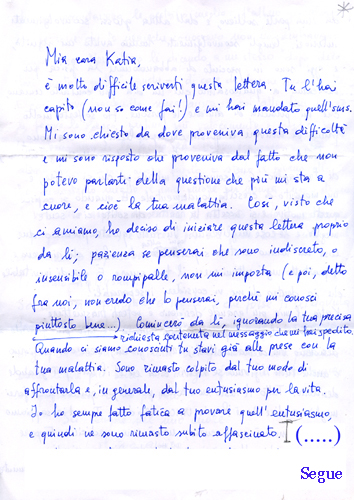 Mia cara Katia,
è molto difficile scriverti questa lettera. Tu l'hai
capito (non so come fai!) e mi hai mandato quell'sms.
Mi sono chiesto da dove proveniva questa difficoltà
e mi sono risposto che proveniva dal fatto che non
potevo parlarti della questione che più mi sta a
cuore, e cioè la tua malattia. Così, visto che
ci amiamo, ho deciso di iniziare questa lettera proprio
da lì; pazienza se penserai che sono indiscreto, o
insensibile o rompipalle, non mi importa (e poi, detto
fra noi, non credo che lo penserai, perché mi conosci
piuttosto bene...) Comincerò da lì, ignorando la tua precisa
richiesta contenuta nel messaggio che mi hai spedito.
Quando ci siamo conosciuti tu stavi già alle prese con la
tua malattia. Sono rimasto colpito dal tuo modo di
affrontarla e, in generale, dal tuo entusiasmo per la vita.
Io ho sempre fatto fatica a provare quell'entusiasmo,
e quindi ne sono rimasto subito affascinato. (.....)
Segue